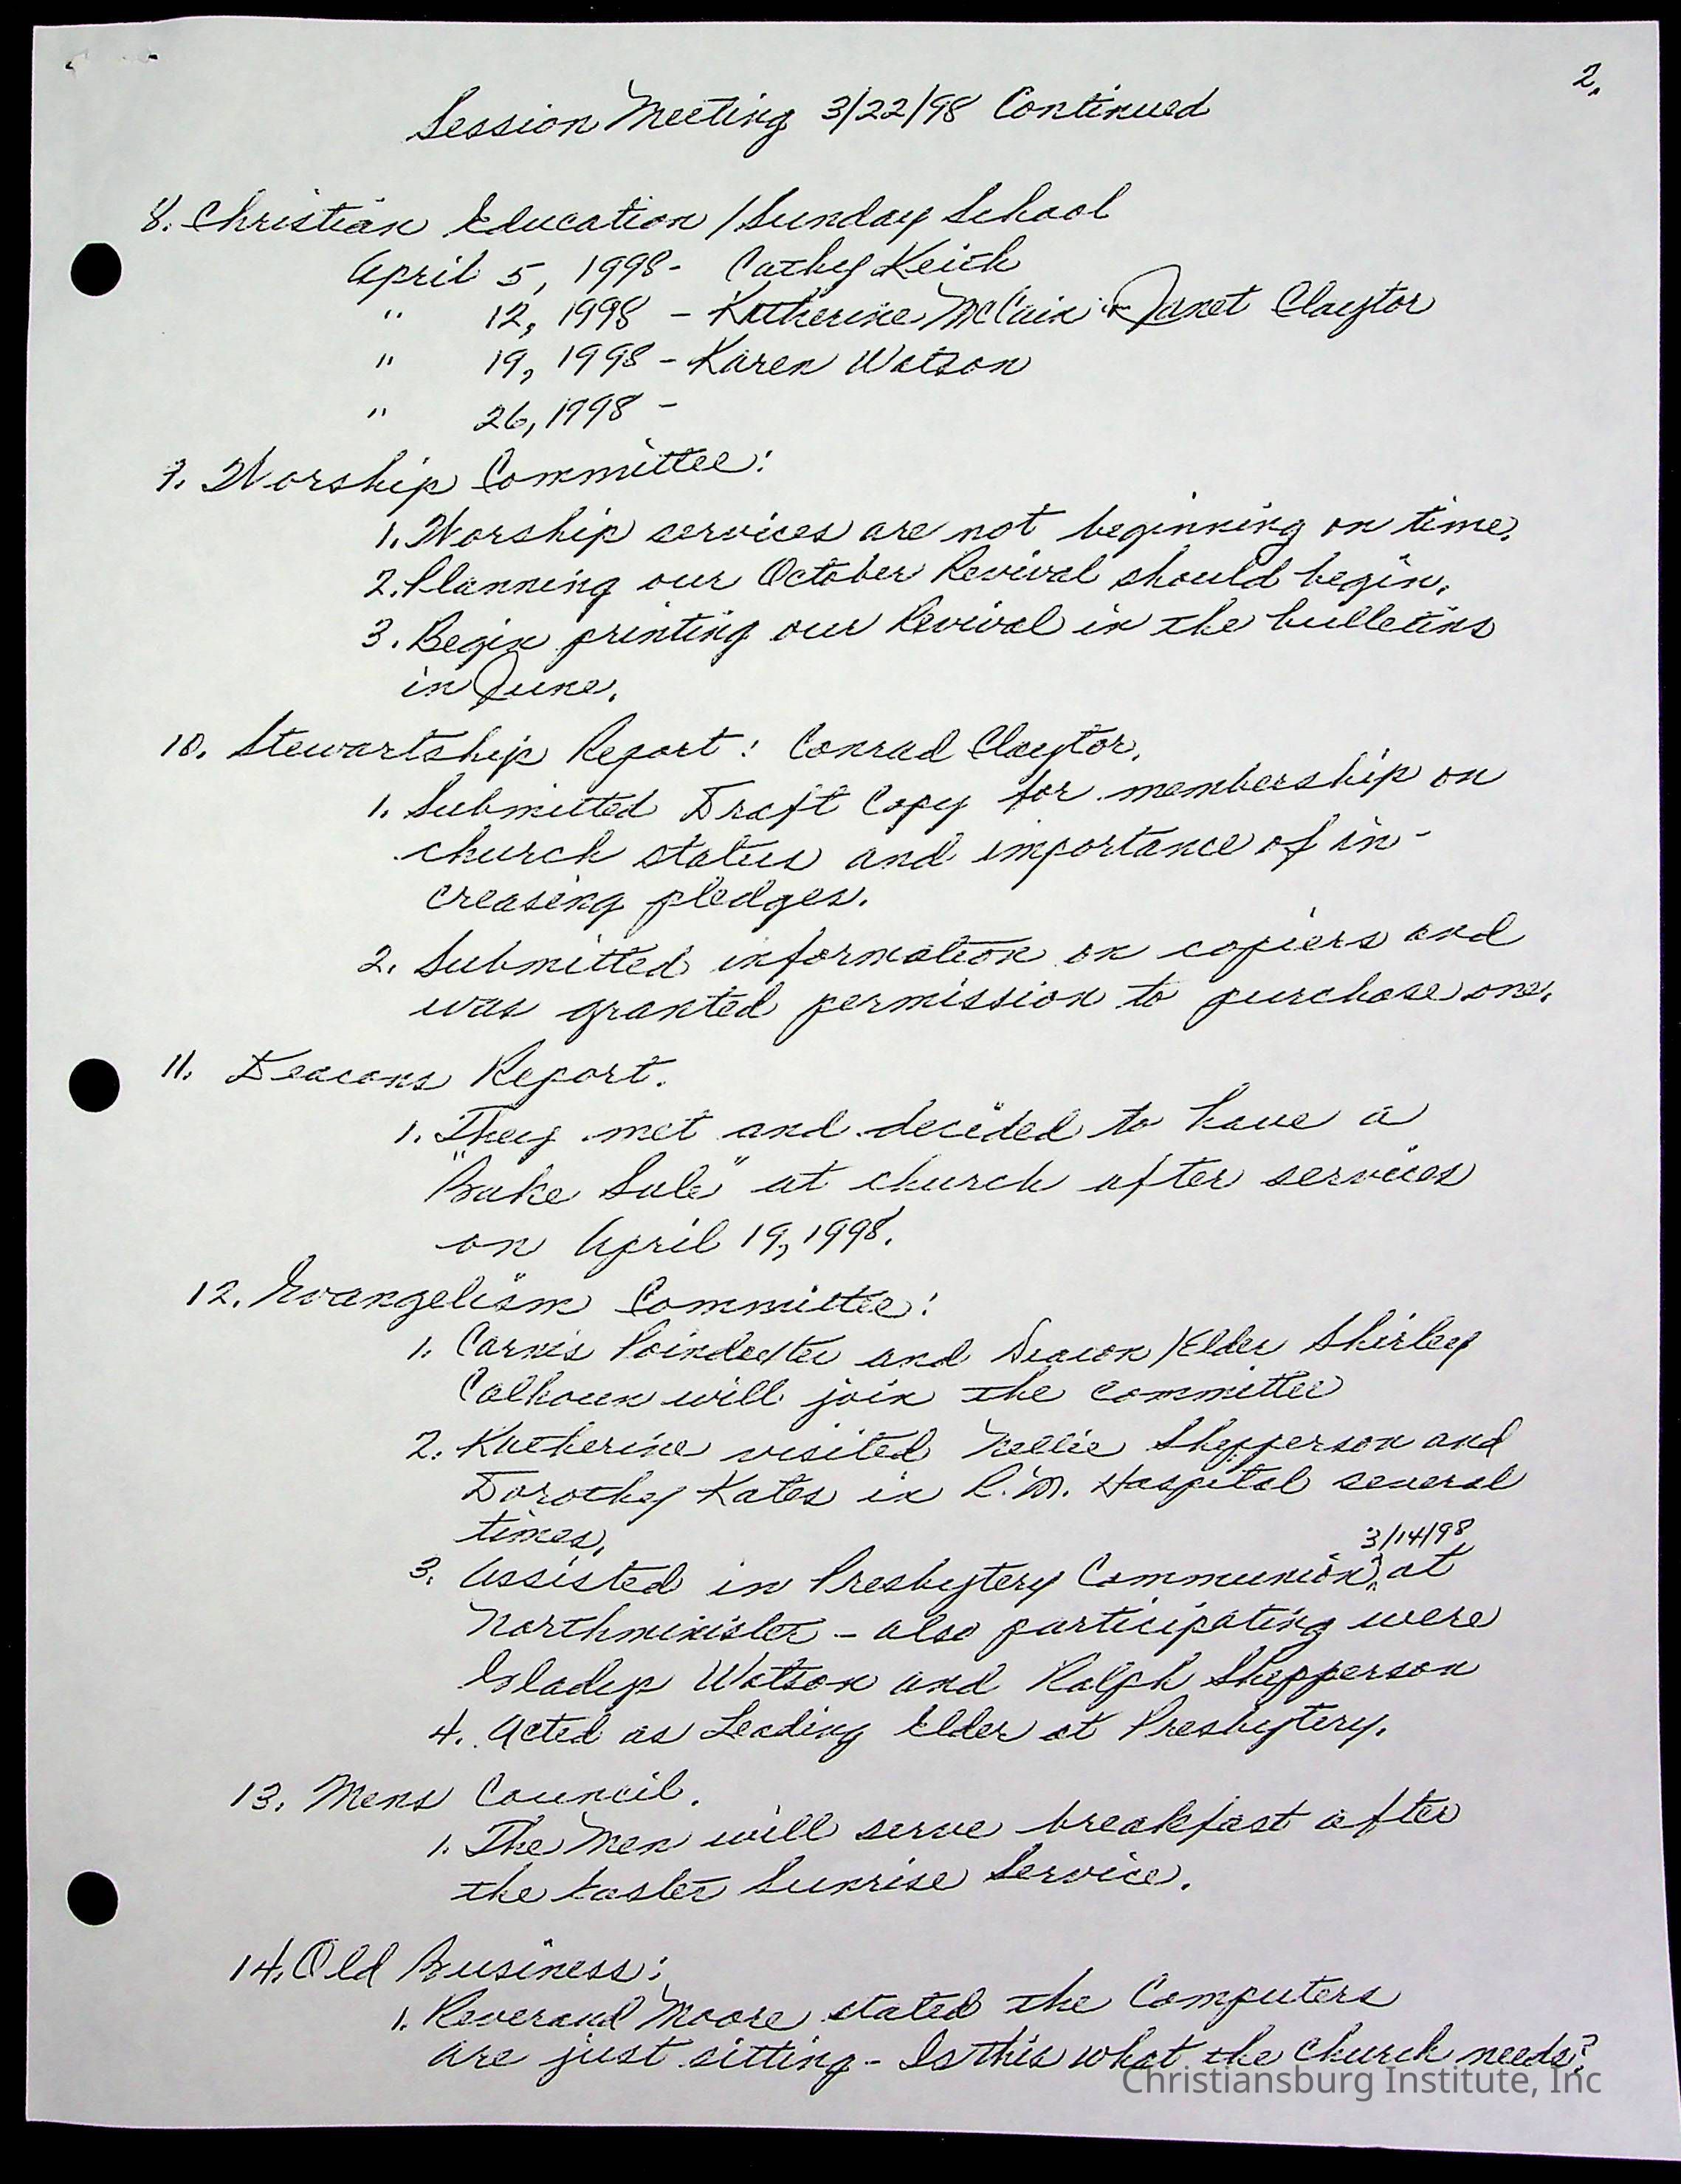 2.
Session Meeting 3/22/98 Continued
8. Christian Education / Sunday School
April 5, 1998 - Cathy Keith
" 12, 1998 - Katherine McCain & Janet Claytor
" 19, 1998 - Karen Watson
" 26, 1998 -
9. Worship Committee:
1. Worship services are not beginning on time.
2. Planning our October Revival should begin.
3. Begin printing our Revival in the bulletins
in June.
10. Stewartship Report: Conrad Claytor.
1. Submitted Draft Copy for membership on
church status and importance of in-
creasing pledges.
2. Submitted information on copiers and
was granted permission to purchase one.
11. Deacons Report.
1. They met and decided to have a
"Bake Sale" at church after services
on April 19, 1998.
12. Evangelism Committee:
1. Carnis Poindexter and Deacon/Elder Shirley
Calhoun will join the committee
2. Katherine visited Nellie Shepperson and
Dorothy Kates in R.M. Hospital several
times.
3/14/98
3. Assisted in Presbytery Communion, at
Northminister - also participating were
Gladys Watson and Ralph Shepperson
4. Acted as Leading Elder at Presbytery.
13. Mens Council.
1. The Men will serve breakfast after
the Easter Sunrise Service.
14. Old Business:
1. Reverand Moore stated the Computers
are just sitting - Is this what the church needs?
Christiansburg Institute, Inc